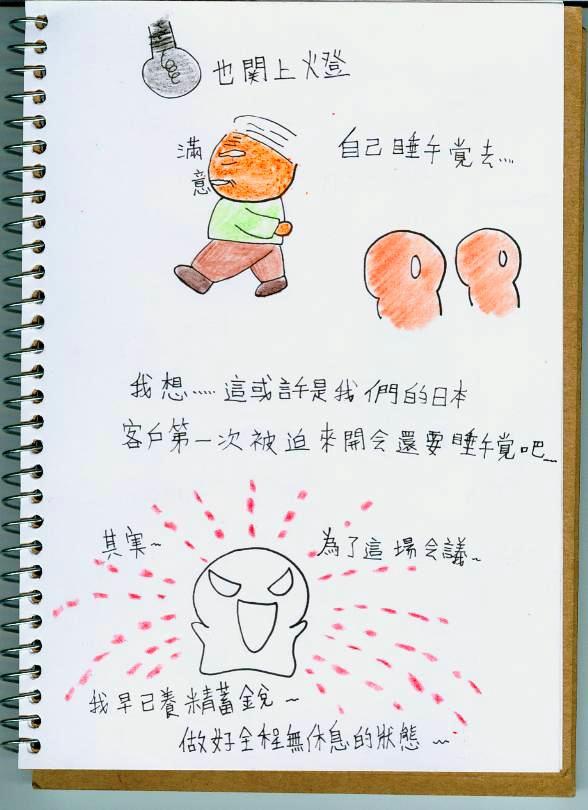 也関上火登
滿意
自己睡午覚去....
我想.....這或許是我們的日本
客戶第一次被迫來開会還要睡午覚吧...
其実~
為了這場会議~
我早已養精蓄銳~
做好全程無休息的狀態~